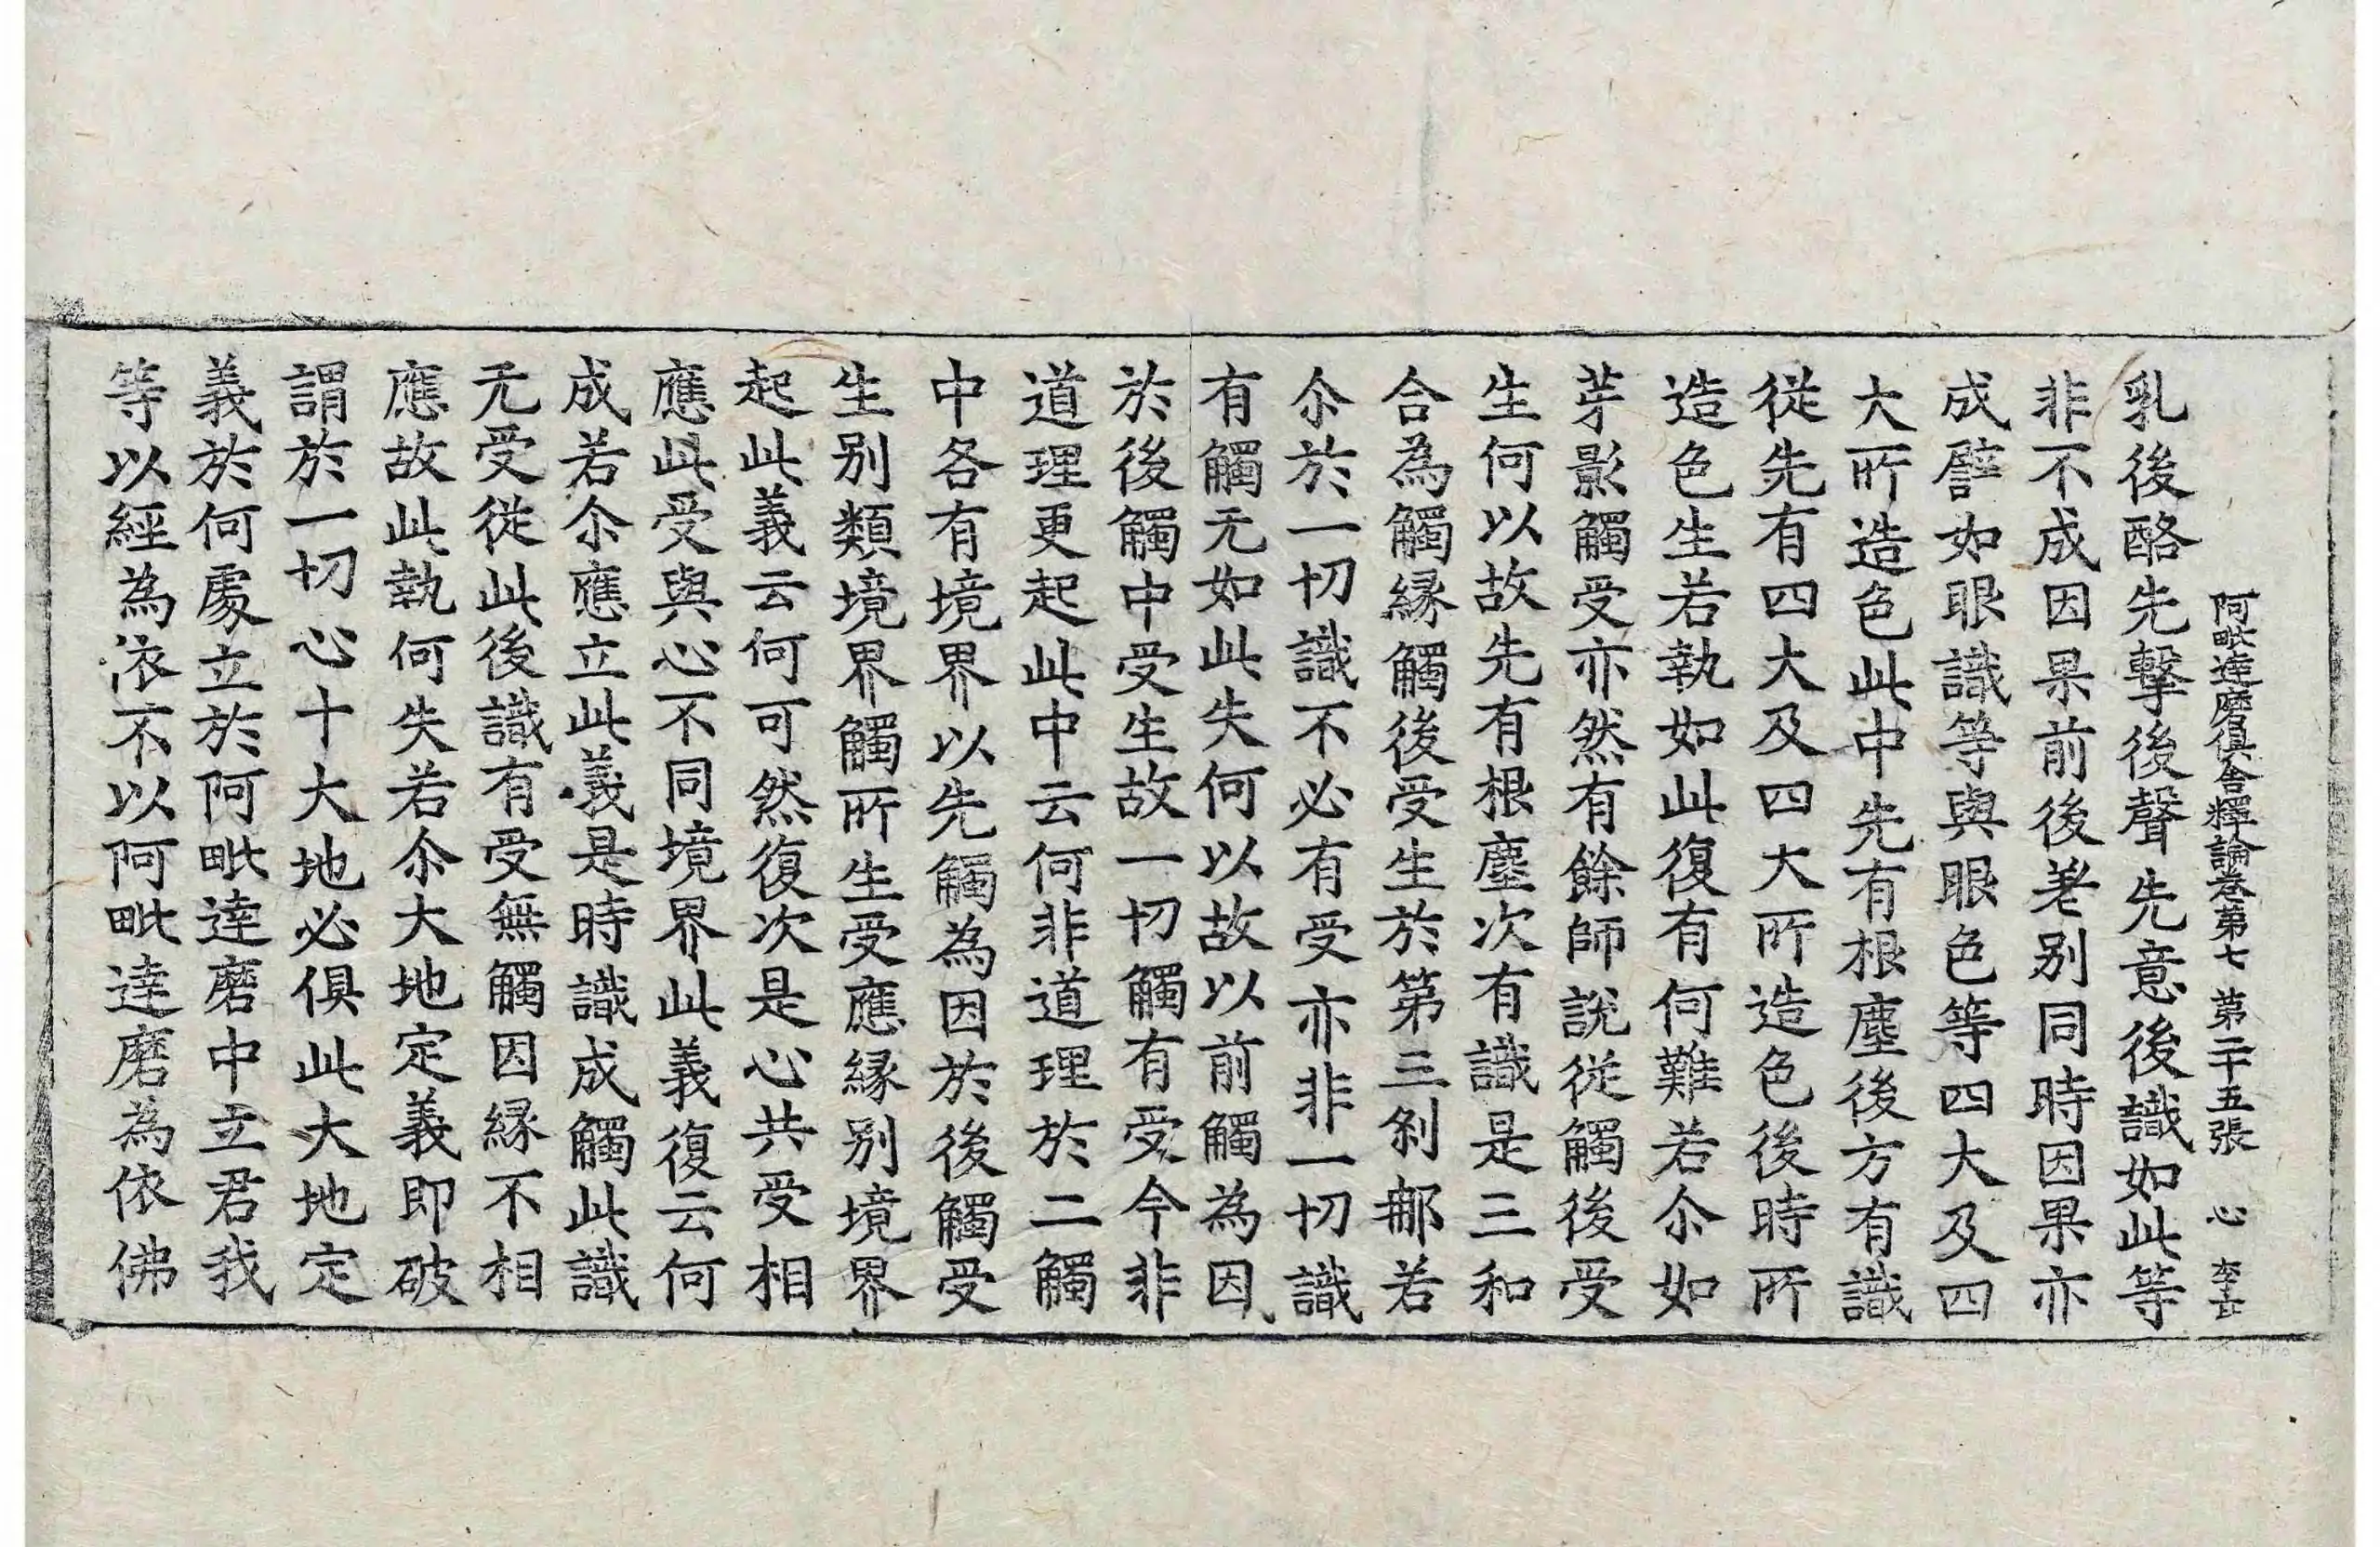 阿毗達磨俱舍釋論卷第七 第二十五張 心
乳後酪先擊後聲先意後識如此等
非不成因果前後差别同時因果亦
成譬如眼識等與眼色等四大及四
大所造色此中先有根塵後方有識
從先有四大及四大所造色後時所
造色生若執如此復有何難若尒如
芽影觸受亦然有餘師説從觸後受
生何以故先有根塵次有識是三和
合為觸縁觸後受生於第三刹那若
尒於一切識不必有受亦非一切識
有觸无如此失何以故以前觸為因
於後觸中受生故一切觸有受今非
道理更起此中云何非道理於二觸
中各有境界以先觸為因於後觸受
生别類境界觸所生受應縁别境界
起此義云何可然復次是心共受相
應此受與心不同境界此義復云何
成若尒應立此義是時識成觸此識
无受從此後識有受無觸因縁不相
應故此執何失若尒大地定義即破
謂於一切心十大地必俱此大地定
義於何處立於阿毗達磨中立君我
等以經為依不以阿毗達磨為依佛